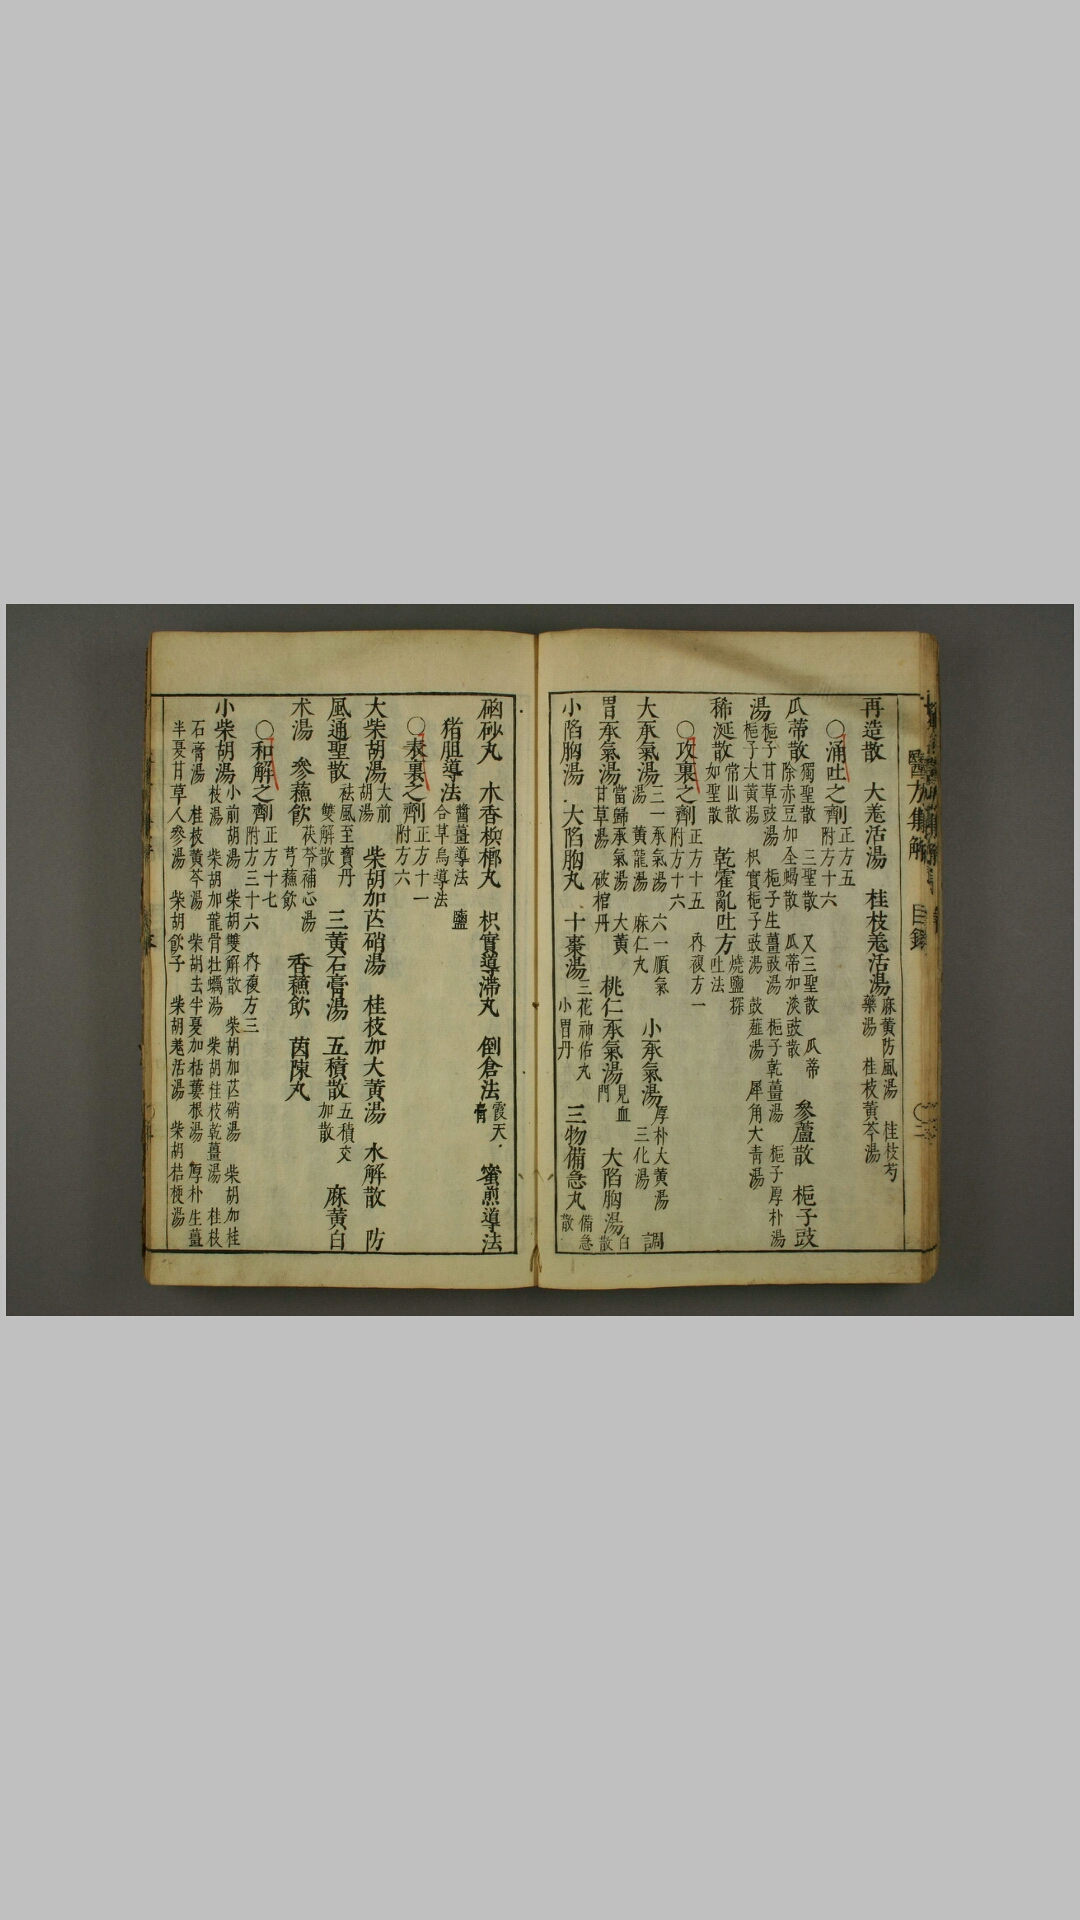 醫方集解 目錄
再造散 大羌活湯 桂枝羌活湯 麻黃防風湯 桂枝芍藥湯 桂枝黃芩湯
〇涌吐之劑 正方五 附方十六
瓜蒂散 獨聖散 三聖散 又三聖散 瓜蒂除赤豆加全蝎散 瓜蒂加淡豉散 參蘆散 梔子豉
湯 梔子甘草豉湯 梔子生薑豉湯 梔子乾薑湯 梔子厚朴湯 梔子大黃湯 枳實梔子豉湯 豉薤湯 犀角大青湯
稀涎散 常山散 如聖散 乾霍亂吐方 燒鹽探吐法
〇攻裏之劑 正方十五 附方十六 內複方一
大承氣湯 三一承氣湯 六一順氣湯 黃龍湯 麻仁丸 小承氣湯 厚朴大黃湯 三化湯 調
胃承氣湯 當歸承氣湯 大黃甘草湯 破棺丹 桃仁承氣湯 見血門 大陷胸湯 白散
小陷胸湯 大陷胸丸 十棗湯 三花神佑丸 小胃丹 三物備急丸 備急散
硇砂丸 木香梹榔丸 枳實導滯丸 倒倉法 霞天膏 蜜煎導法
猪胆導法 醬薑導法 鹽合草烏導法
〇表裏之劑 正方十一 附方六
大柴胡湯 大前胡湯 柴胡加芒硝湯 桂枝加大黃湯 水解散 防
風通聖散 祛風至寶丹 雙解散 三黃石膏湯 五積散 五積交加散 麻黃白
朮湯 參蘇飲 茯苓補心湯 芎蘇飲 香蘇飲 茵陳丸
〇和解之劑 正方十七 附方三十六 內複方三
小柴胡湯 小前胡湯 柴胡雙解散 柴胡加芒硝湯 柴胡加桂枝湯 柴胡加龍骨牡蠣湯 柴胡桂枝乾薑湯 桂枝
石膏湯 桂枝黃芩湯 柴胡去半夏加栝蔞根湯 厚朴生薑半夏甘草人參湯 柴胡飲子 柴胡羌活湯 柴胡桔梗湯